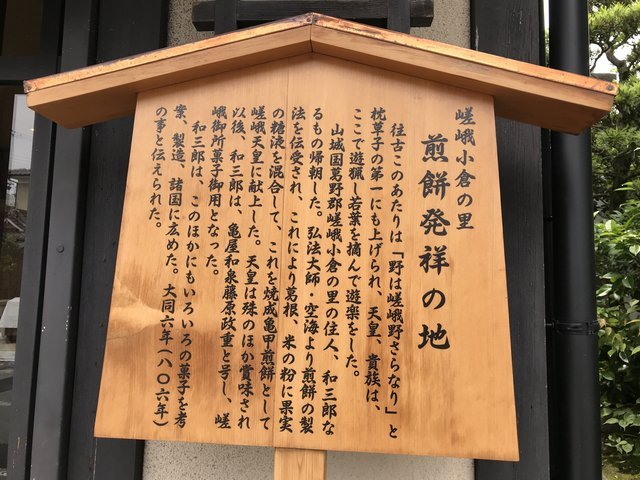 嵯峨小倉の里
煎餅発祥の地
往古このあたりは「野は嵯峨野さらなり」と
枕草子の第一にも上げられ、天皇、貴族は、
ここで遊猟し若葉を摘んで遊楽をした。
山城国葛野郡嵯峨小倉の里の住人、和三郎な
るもの帰朝した。弘法大師・空海より煎餅の製
法を伝受され、これにより葛根、米の粉に果実
の糖液を混合して、これを焼成亀甲煎餅として
嵯峨天皇に献上した。天皇は殊のほか賞味され
以後、和三郎は、亀屋和泉藤原政重と号し、嵯
峨御所菓子御用となった。
和三郎は、このほかにもいろいろの菓子を考
案、製造、諸国に広めた。大同六年(八〇六年)
の事と伝えられた。